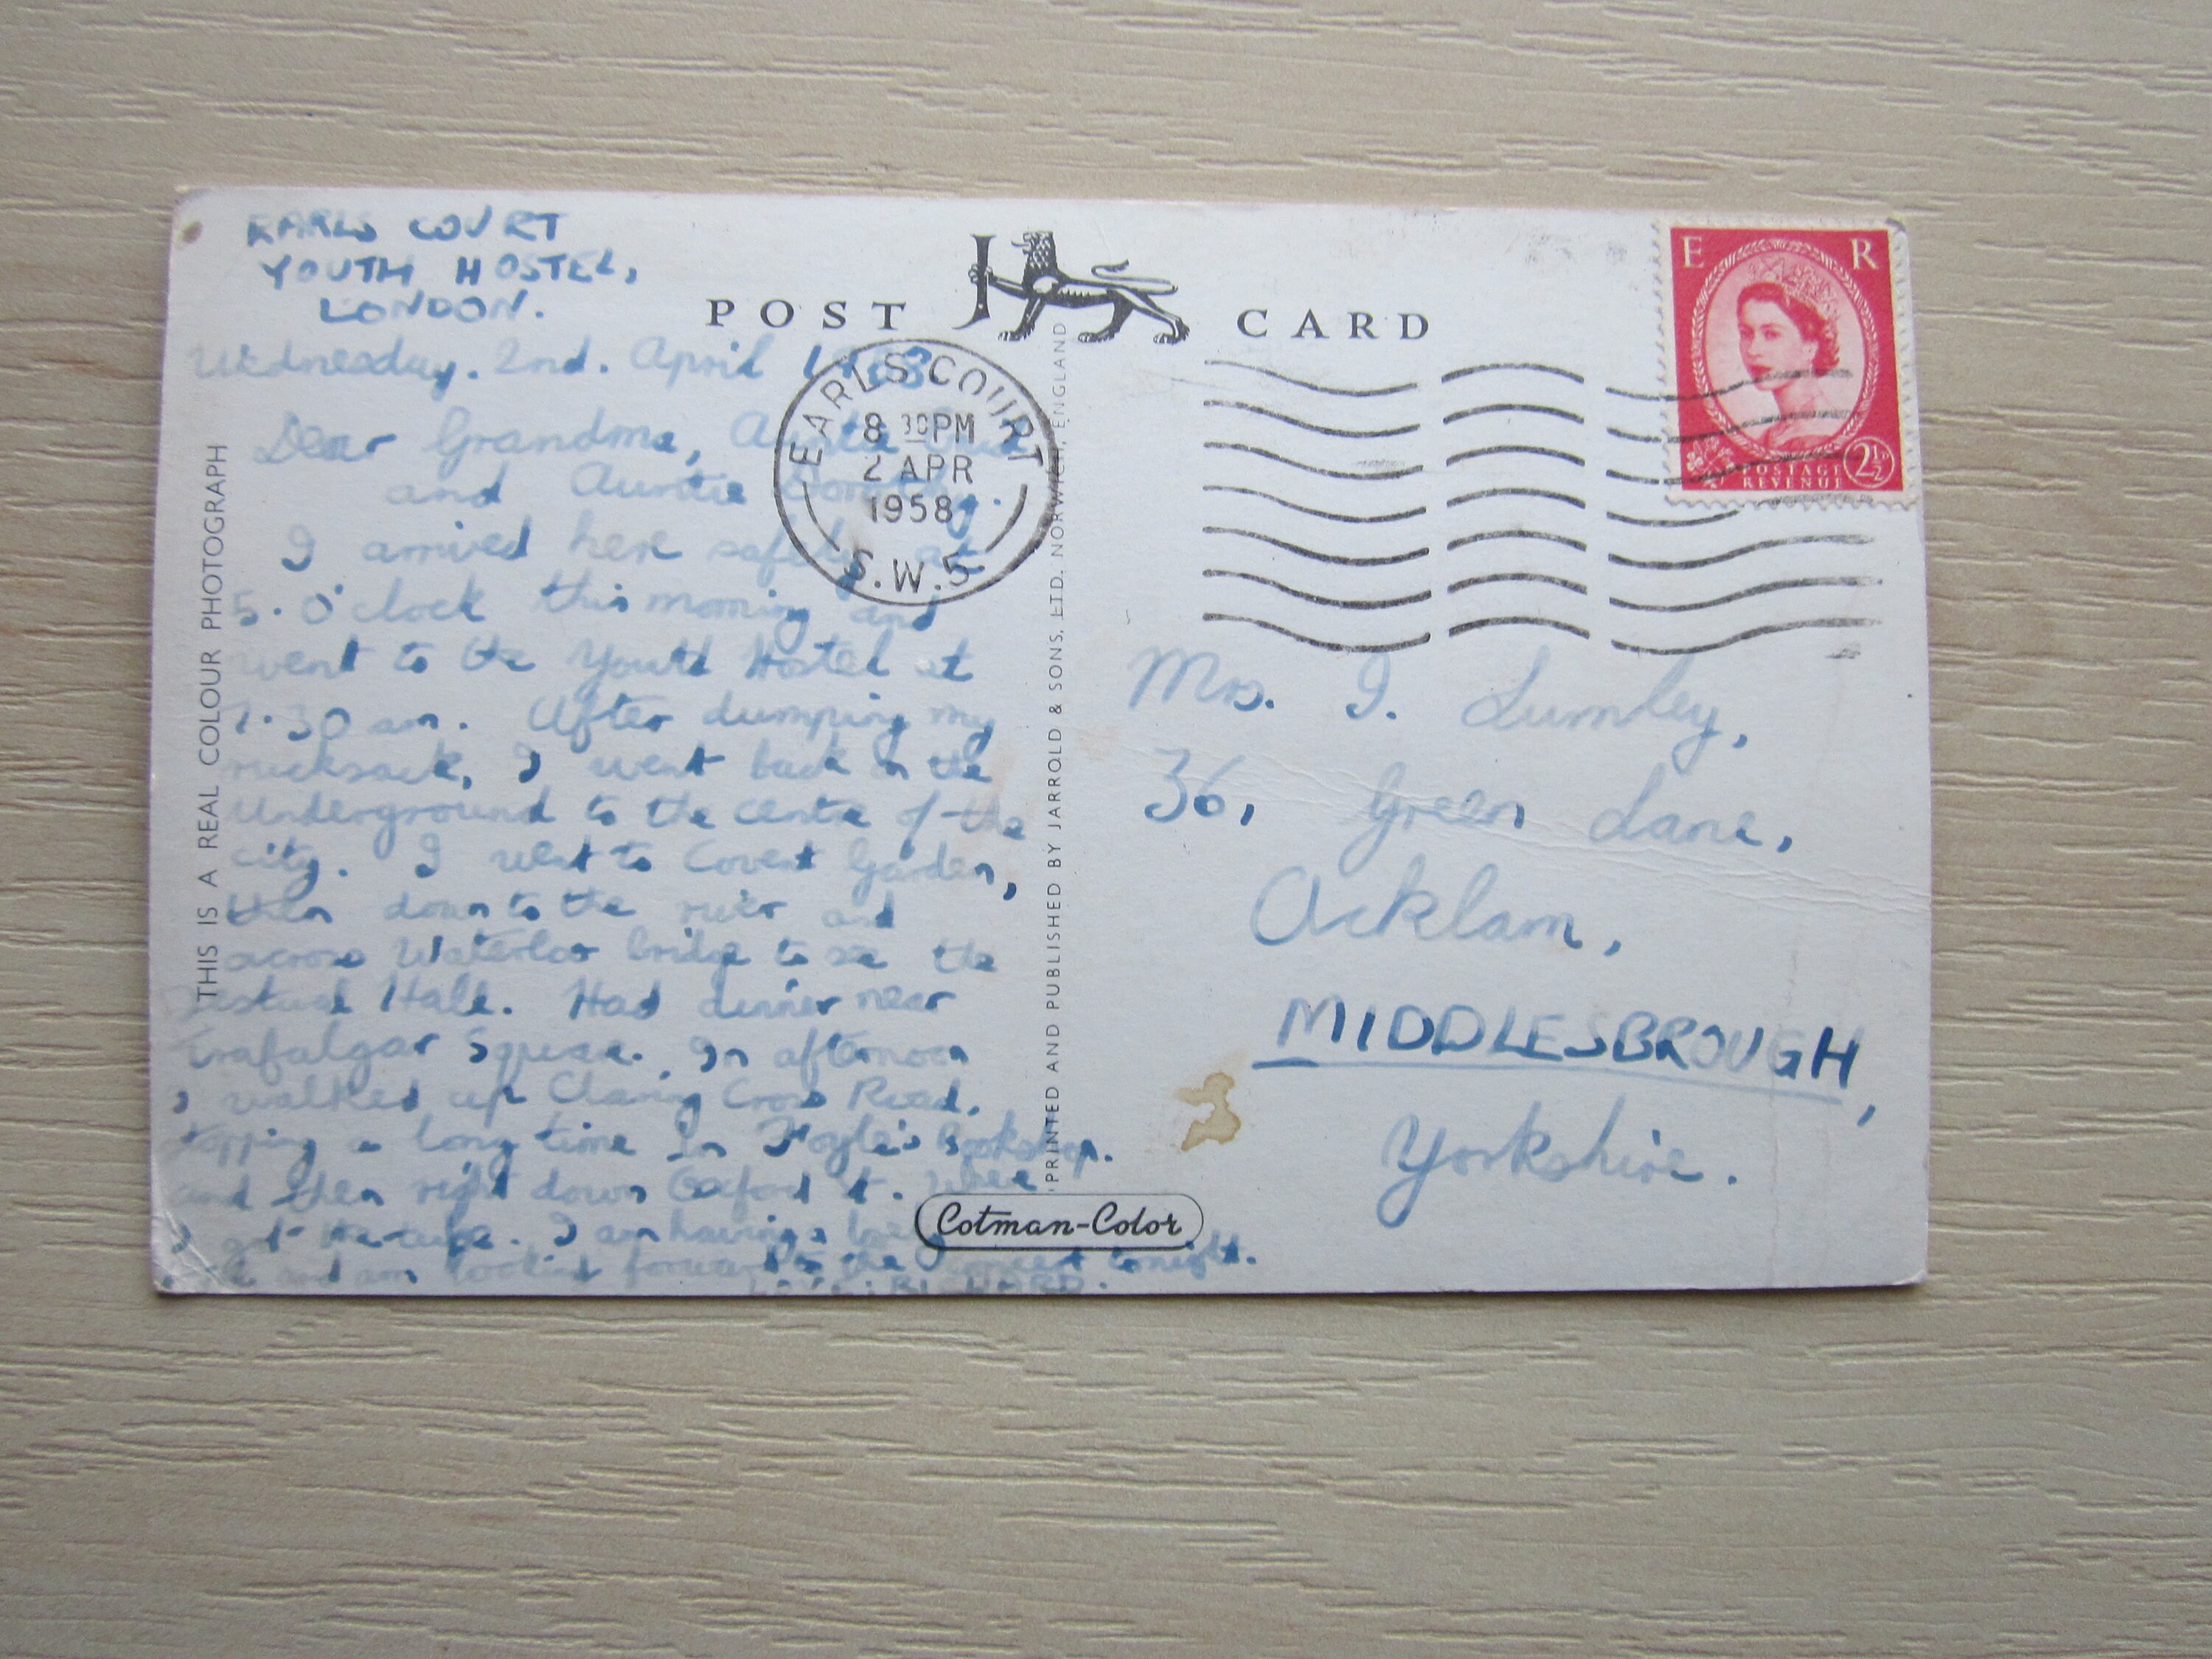 EARLS COURT
YOUTH HOSTEL,
LONDON.
Wednesday. 2nd. April 1958
Dear Grandma, Auntie
and Auntie Dorothy.
I arrived here safely at
5.0'clock this morning and
went to the Youth Hostel at
7.30 am. After dumping my
rucksack, I went back on the
Underground to the centre of the
city. I went to Covent Garden,
then down to the river and
across Waterloo bridge to see the
Festival Hall. Had dinner near
Trafalgar Square. In afternoon
I walked up Charing Cross Road,
stopping a long time in Foyle's Bookshop.
and then right down Oxford St. where
I got the tube. I am having a lovely
and am looking forward to the concert tonight.
POST CARD
EARLS COURT
8 30PM
2 APR
1958
S.W.5.
E R
POSTAGE
REVENUE
2½
Mrs. I. Lumley,
36, Green Lane,
Acklam,
MIDDLESBROUGH,
Yorkshire.
THIS IS A REAL COLOUR PHOTOGRAPH
PRINTED AND PUBLISHED BY JARROLD & SONS, LTD. NORWICH, ENGLAND
Cotman-Color